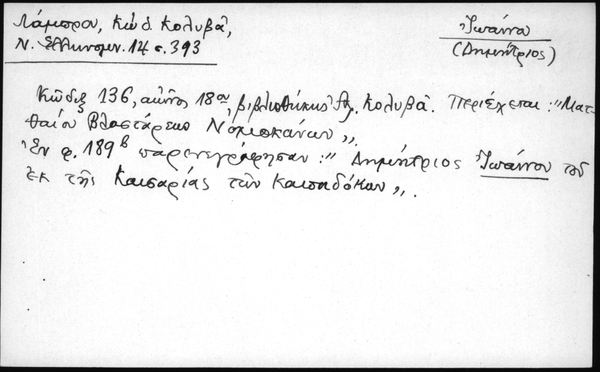 Λάμπρου, Κώδ. Κολυβᾶ,
Ν. Ἑλληνομν. 14 σ. 393
Ἰωάννου
(Δημήτριος)
Κῶδιξ 136, αἰῶνος 18ου, βιβλιοθήκης Ἀλ. Κολυβᾶ. Περιέχεται: "Ματ-
θαίου Βλαστάρεως Νομοκάνων„.
Ἐν φ. 189β παρενεγράφησαν: "Δημήτριος Ἰωάννου τοῦ
ἐκ τῆς Καισαρίας τῶν Καππαδόκων„.